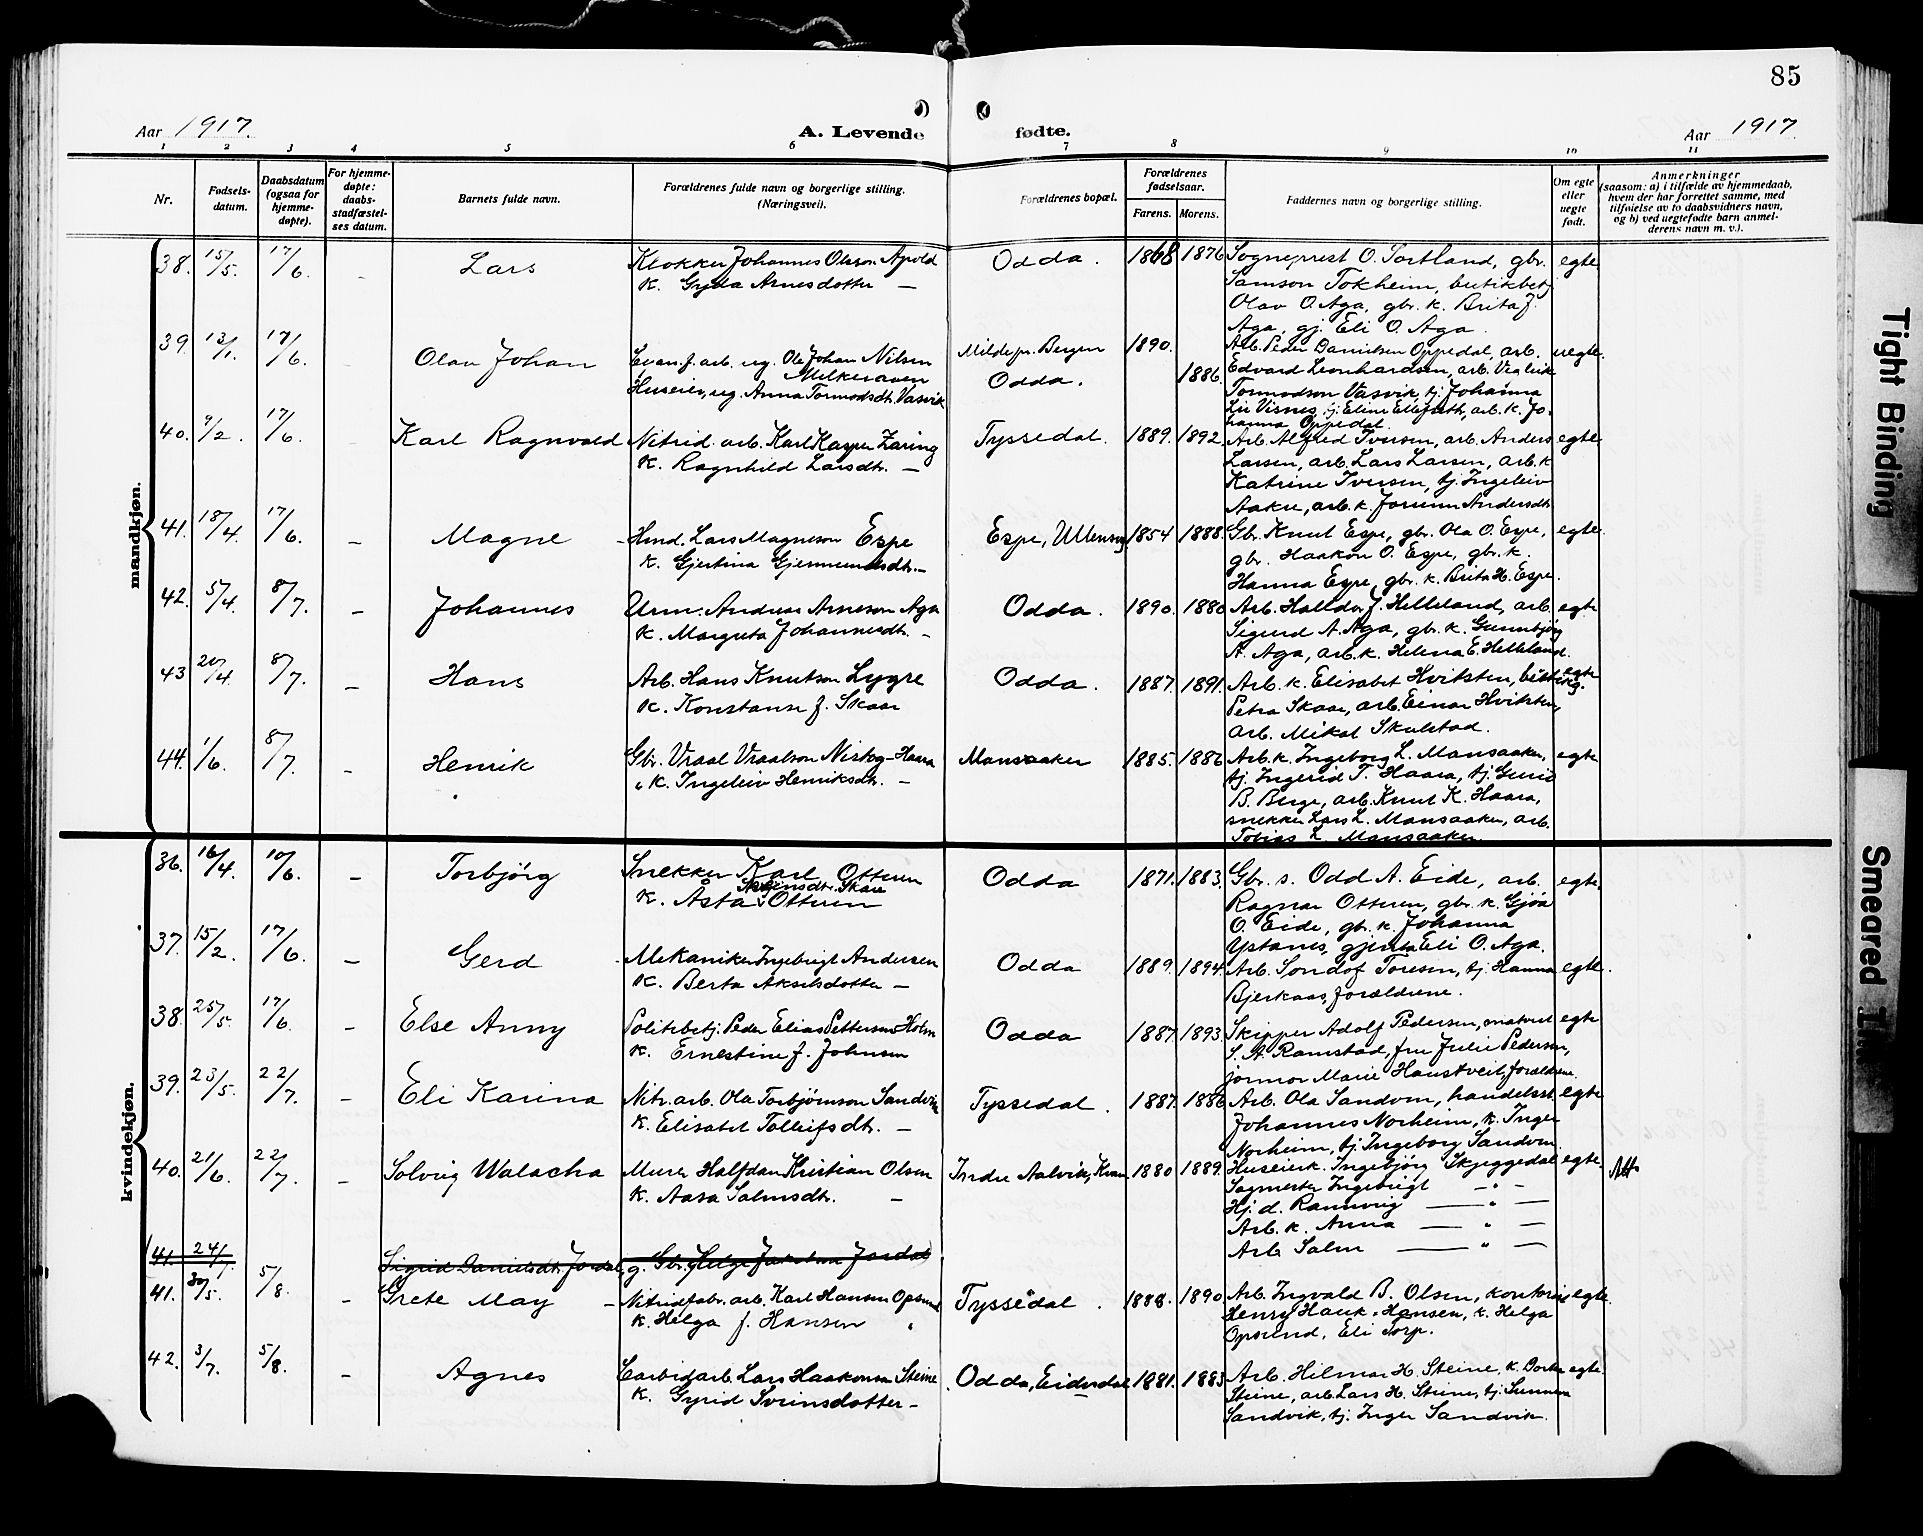 85
Aar 1917.
A. Levende fødte.
Aar 1917.
1 2 3 4 5 6 7 8 9 10 11
Nr.
Fødsels-
datum.
Daabsdatum
(ogsaa for
hjemme-
døpte).
For hjemme-
døpte:
daabs-
stadfæstel-
ses datum.
Barnets fulde navn.
Forældrenes fulde navn og borgerlige stilling.
(Næringsvei).
Forældrenes bopæl.
Forældrenes
fødselsaar.
Farens. Morens.
Faddernes navn og borgerlige stilling.
Om egte
eller
uegte
født.
Anmerkninger
(saasom: a) i tilfælde av hjemmedaab,
hvem der har forrettet samme, med
tilføielse av to daabsvidners navn,
og b) ved uegtefødte barn anmel-
derens navn m. v.).
mandkjøn.
38. 15/5. 17/6. - Lars
Klokker Johannes Olsson Apold
K. Gyda Arnesdotter —
Odda. 1868 1876
Sogneprest O. Sortland, gbr.
Samson Tokheim, butikbetj.
Olav O. Aga, gbr. k. Brita J.
Aga, gj. Eli O. Aga.
egte
39. 13/1. 17/6. Olav Johan
ug. Ole Johan Nilsen
Milkeraaen
Huseier, ug. Anna Tormodsdt. Vasvik
Milde pr. Bergen
Odda. 1890. 1886.
Arb. Peder Danielsen Oppedal, arb.
Edvard Leonhardsen, arb. Vigleik
Tormodson Vasvik, tj. Johanna
Lie Visnes, tj. Eline Ellefseth, arb. k. Jo-
hanna Oppedal.
uegte.
40. 9/2. 17/6. Karl Ragnvald
Nitrid. arb. Karl Kasper Zaring
K. Ragnhild Larsdt. —
Tyssedal. 1889. 1892.
Arb. Alfred Iversen, arb. Anders
Larsen, arb. Lars Larsen, arb. k
Katrine Iversen, tj. Ingeleiv
Aakre, arb. k. Jorunn Andersdt.
egte
41. 18/4. 17/6. - Magne
Hmd. Lars Magneson Espe
K. Gjertina Gjermundsdt. —
Espe, Ullensvg. 1854 1888.
Gbr. Knut Espe, gbr. Ola O. Espe,
gbr. Haakon O. Espe, gbr. k.
Hanna Espe, gbr. k. Brita H. Espe.
egte
42. 5/4. 8/7. - Johannes
Urm. Andreas Arneson Aga
K. Margreta Johannesdt. —
Odda. 1890. 1880
Arb. Halldor J. Helleland, arb.
Sigurd A. Aga, gbr. k. Gunnbjørg
A. Aga, arb. k. Helena E. Helleland.
egte
43 20/4. 8/7. - Hans
Arb. Hans Knutson Lygre
K. Konstanse f. Skaar
Odda. 1887. 1891.
Arb. k. Elisabet Hvitsten,
Petra Skaar, arb. Einar Hvitsten,
arb. Mikal Skulstad.
egte
44. 1/6. 8/7. - Henrik
Gbr. Vraal Vraalson Haara
K. Ingeleiv Henriksdt. —
Mansaaker 1885. 1886
Arb. k. Ingeborg L. Mansaaker,
tj. Ingerid T. Haara, tj. Gurid
B. Berge, arb. Knut K. Haara,
snekker Lars L. Mansaaker, arb.
Tobias L. Mansaaker.
egte
kvindekjøn.
36. 16/4. 10/6. - Torbjörg
Snekker Karl Otteren
Skare
K. Åsta Otteren
Odda 1871. 1883.
Gbr. s. Odd A. Eide, arb.
Ragnar Otteren, gbr. k. Gjøa
O. Eide, gbr. k. Johanna
Ystanes, gjenta Eli O. Aga.
egte.
37. 15/2. 17/6. - Gerd
Mekaniker Ingebrigt Andersen
K. Berta Akselsdotter —
Odda 1889. 1894.
Arb. Sondof Toresen, tj. Hanna
Bjerkaas, forældrene.
egte.
38. 25/5. 17/6. - Else Anny
Politibetj. Peder Elias Pettersen Holm
K. Ernestine f. Johnsen
Odda 1887. 1893.
Skipper Adolf Pedersen,
S. A. Ramstad, fru Julie Pedersen,
jormor Marie Haustveit, forældrene.
egte
39. 23/5. 22/7. - Eli Karina
Nitr. arb. Ola Torbjørnson Sandvin
K. Elisabet Tolleifsdt. —
Tyssedal. 1887. 1886
Arb. Ola Sandven, handelsst.
Johannes Norheim, k. Inger
Norheim, tj. Ingeborg Sandven.
egte
40. 21/6. 22/7. - Solveig Walacha
Murer Halfdan Kristian Olsen
K. Aasa Salmsdt. —
Indre Aalvik, Kvam. 1880 1889.
Huseierk. Ingebjørg Skjeggedal
Sagmester Ingebrigt — " —
Hj. d. Rannveig — " —
Arb. k. Anna — " —
Arb. Salm — " —
egte. Att.
41. 24/7. Sigrid Danielsdt. Jordal, g. Gbr. Helge Jakobson Jordal
41. 30/5. 5/8. - Grete May
Nitridfabr. arb. Karl Hansen Opsund
K. Helga f. Hansen "
Tyssedal. 1888. 1890
Arb. Ingvald B. Olsen,
Henry Hauk-Hansen, k. Helga
Opsund, Eli Torp.
egte.
42. 3/7. 5/8. - Agnes
Carbidarb. Lars Haakonsen Steine
K. Gyrid Sveinsdotter —
Odda, Eidesdal 1881. 1883
Arb. Hilmar H. Steine, k. Dorte
Steine, arb. Lars H. Steine, tj. Sunneva
Sandvik, tj. Inger Sandvik.
egte.
Tight Binding
Smeared